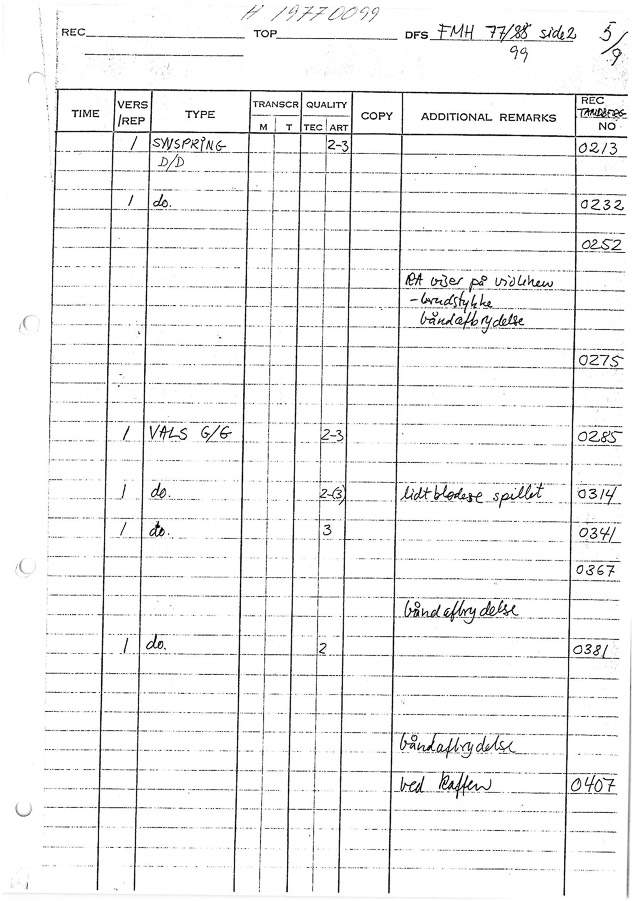 H 19770099
REC TOP DFS FMH 77/88 side 2 5/9
99
TIME VERS/REP TYPE TRANSCR M T QUALITY TEC ART COPY ADDITIONAL REMARKS REC TANDBERG NO
1 SVVSPRING 2-3 0213
D/D
1 do. 0232
0252
viser på violinen
- brudstykke
båndafbrydelse
0275
1 VALS G/G 2-3 0285
1 do. 2-(3) lidt blødere spillet 0314
1 do. 3 0341
0367
båndafbrydelse
1 do. 2 0381
båndafbrydelse
ved kaffen 0407